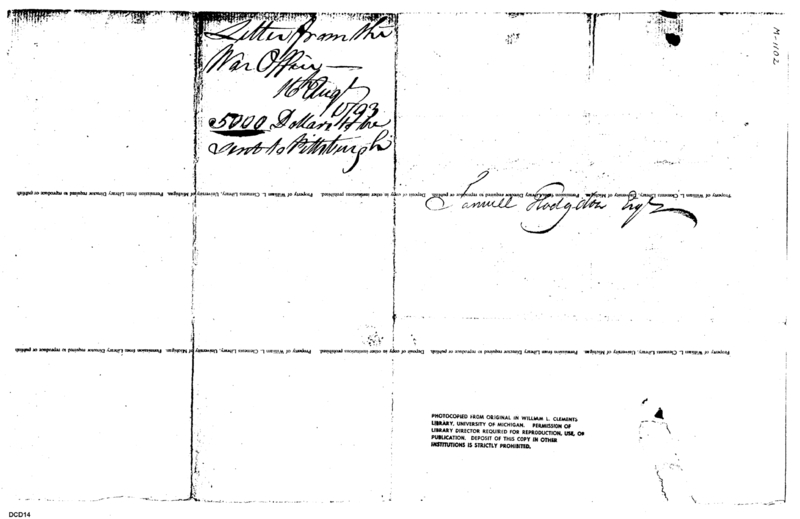 Letter from the
War Office —
16th Augt
1793
5000 Dollars to be
sent to Pittsburgh
M-1102
Property of William L. Clements Library, University of Michigan. Permission from Library Director required to reproduce or publish. Deposit of copy in other institutions prohibited. Property of William L. Clements Library, University of Michigan. Permission from Library Director required to reproduce or publish
Samuel Hodgdon Esqr
Property of William L. Clements Library, University of Michigan. Permission from Library Director required to reproduce or publish. Deposit of copy in other institutions prohibited. Property of William L. Clements Library, University of Michigan. Permission from Library Director required to reproduce or publish
PHOTOCOPIED FROM ORIGINAL IN WILLIAM L. CLEMENTS
LIBRARY, UNIVERSITY OF MICHIGAN. PERMISSION OF
LIBRARY DIRECTOR REQUIRED FOR REPRODUCTION, USE, OR
PUBLICATION. DEPOSIT OF THIS COPY IN OTHER
INSTITUTIONS IS STRICTLY PROHIBITED.
DCD14